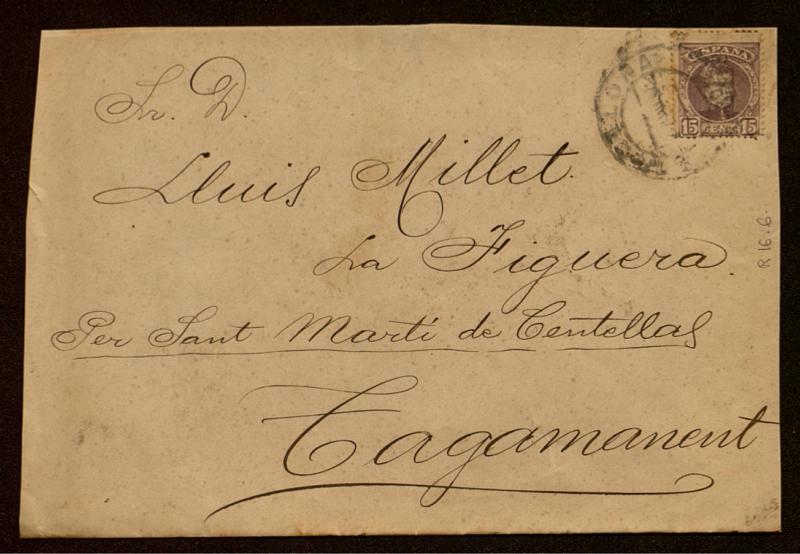 ESPAÑA
15 CENT. 15
Sr. D.
Lluis Millet.
La Figuera.
Per Sant Martí de Centellas
Tagamanent
R 16.6.